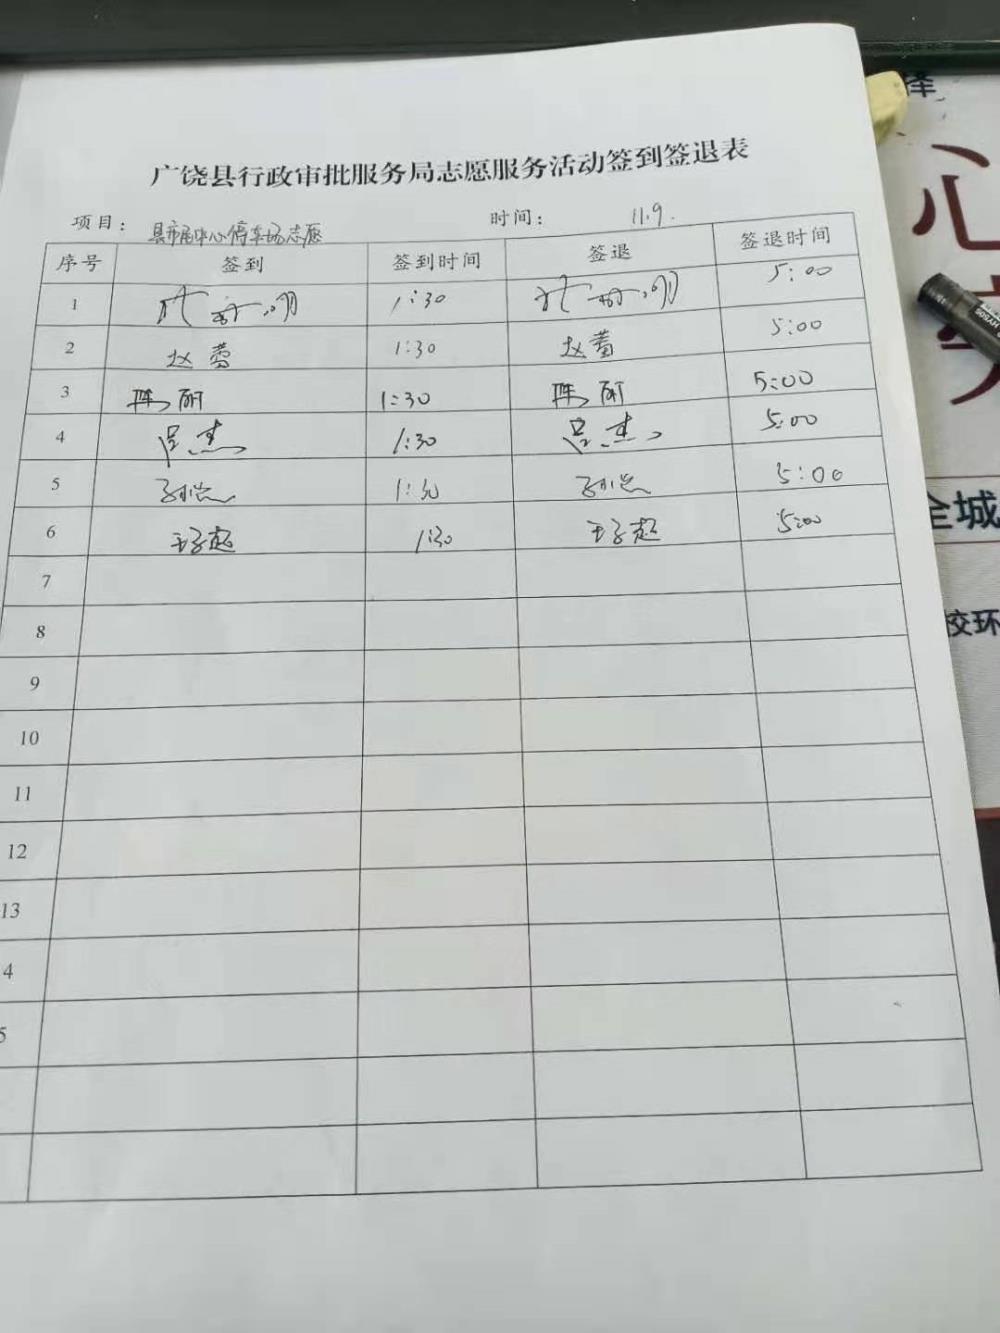 广饶县行政审批服务局志愿服务活动签到签退表
项目： 县市民中心停车场志愿 时间： 11.9.
序号 签到 签到时间 签退 签退时间
1 1:30 5:00
2 赵蕾 1:30 赵蕾 5:00
3 陈丽 1:30 陈丽 5:00
4 吕杰 1:30 吕杰 5:00
5 1:30 5:00
6 王子超 1:30 王子超 5:00
7
8
9
10
11
12
13
4
5
择
心
全城
校环